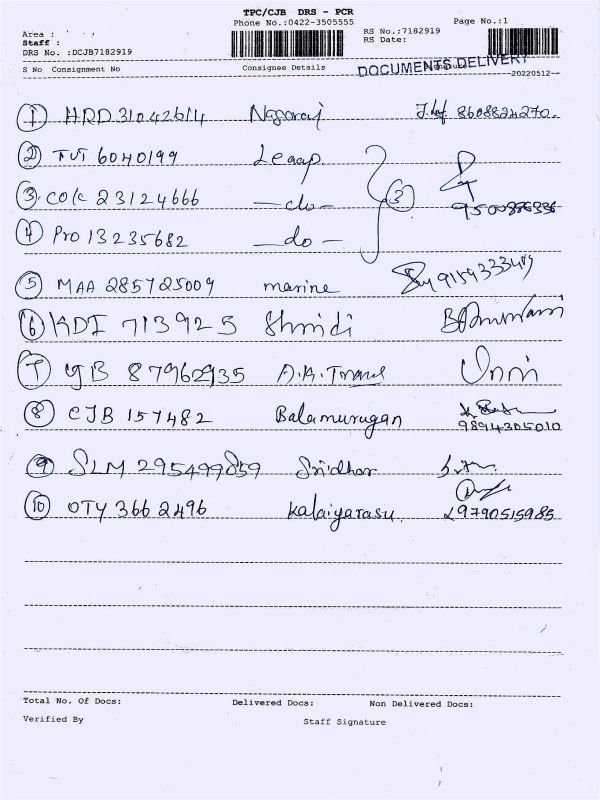 TPC/CJB DRS - PCR
Phone No.:0422-3505555 Page No.:1
Area :
Staff :
DRS No. :DCJB7182919
RS No.:7182919
RS Date:
S No Consignment No Consignee Details
DOCUMENTS DELIVERY
20220512
1 HRD 31042614 Nagaraj 8608824270
2 TVT 6040199 Leaap
3 CO/C 23124666 —do— 3 9500886336
4 Pro 13235682 —do—
5 MAA 285725009 marine 9159333419
6 KDI 713925 Shridi
7 CJB 87962935 A.A. Travel
8 CJB 157482 Balamurugan 9894305010
9 SLM 295499859 Sridhar
10 OTY 366 2496 Kalaiyarasu 9790515985
Total No. Of Docs: Delivered Docs: Non Delivered Docs:
Verified By Staff Signature